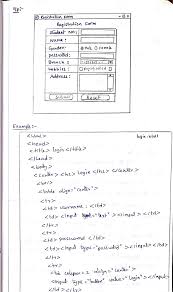 Registration Form
Registration Form
Student no:
Name:
Gender: male female
password:
Branch:
hobbies:
Address:
Submit Reset
Example:-
<html> login.html
<head>
<title> login </title>
</head>
<body>
<center> <h2> Login </h2> </center>
<br/>
<table align="center">
<tr>
<td> username : </td>
<td> <input type="text"> </input> </td>
</tr>
<tr>
<td> password </td>
<td> <input type="password"> </input> </td>
</tr>
<tr>
<td colspan=2 align="center">
<input type="button" value="login"> </input>
</td> </tr>